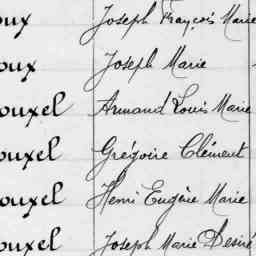 oux Joseph François Marie
oux Joseph Marie
ouxel Armand Louis Marie
ouxel Grégoire Clément
ouxel Henri Eugène Marie
ouxel Joseph Marie Desiré